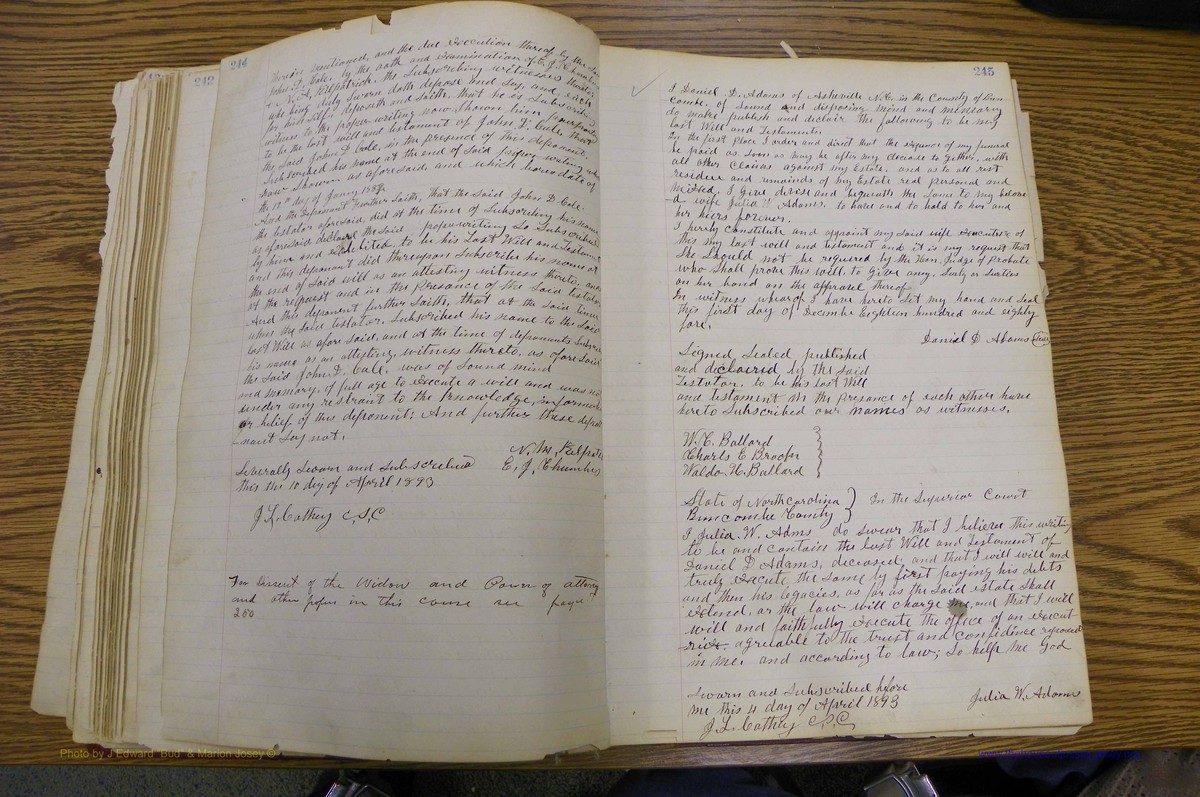 242
244
therein mentioned, and the due execution thereof by the said
John D. Cole, by the oath and examination of E. J. Chambers
& N. A. Kilpatrick, the Subscribing witnesses thereto
who being duly Sworn doth depose and Say, and each
for himself deposeth and Saith, that he is Subscribing
witness to the paperwriting now Shown him purporting
to be the last will and testament of John D. Cole, that
the said John D Cole, in the presence of this deponent,
Subscribed his name at the end of Said paper writing
now Shown as aforesaid, and which bears date of
the 12th day of January 1887
And the deponent further Saith, that the Said John D Cole
the testator aforesaid did at the time of Subscribing his name
as aforesaid declared the said paperwriting So Subscribed
by him and Exhibited, to be his Last Will and Testament
and this deponant did thereupon Subscribe his name at
the end of Said will as an attesting witness thereto, and
at the request and in the Presance of the Said testator
And this deponent further Saith, that at the Said time
when the Said testator, Subscribed his name to the Said
last Will as afore Said, and at the time of deponants Subscri
his name as an attesting witness thereto, as aforesaid
the Said John D. Cole. was of Sound mind
and memory, of full age to Execute a will and was not
under any restraint to the Knowledge, informati
or belief of this deponent; And further these depo
nant Say not.
N. M. Kilpatri
E. J. Chambers
Severally Sworn and Subscribed
this the 10 day of April 1893
J L. Cathey C, S, C
For Dissent of the Widow and Powr of attorney
and other papers in this cause see page
280
245
I Daniel D. Adams of Asheville N.C. in the County of Bun-
combe, of Sound and disposing mind and memory
do make publish and declair the following to be my
last Will and Testaments.
In the first place I order and direct that the expences of my funeral
be paid as Soon as may be after my decease to gether, with
all other Claims against my Estate. and as to all rest
residue and remainds of my Estate real personal and
mixed, I give devise and bequeath the Same to my belove
d wife Julia W Adams, to have and to hold to her and
her hiers forever.
I hereby Constitute and appoint my said wife Executrix of
this my last will and testament and it is my request that
She Should not be required by the Hon, Judge of Probate
who Shall prove this will to give any. Surty or Surties
on her bond on the apprasel thereof.
In witness whearof I have hereto Set my hand and Seal
this first day of Decembe Eighteen hundred and eighty
fore.
Daniel D Adams (Seal)
Signed Sealed published
and declaired by the Said
Testator. to be his last Will
and testament in the presance of each other have
hereto Subscribed our names as witnesses.
W. C. Ballard
Charls E Brooker
Waldo H. Ballard
State of North carolina } In the Superior Court
Buncombe County
I Julia. W. Adams do Swear that I believe this writing
to be and contain the last Will and Testament of
Daniel D Adams, deceased, and that I will will and
truly Execute the Same by first paying his debts
and then his legacies, as far as the Said estate Shall
extend, or the law will charge me, and that I will
will and faithfully execute the office of an execut
rix, agreable to the trust and confidence reposed
in me. and according to law; So help me God
Sworn and Subscribed before
me this 4 day of April 1893
J L. Cathey C S C
Julia W. Adams
Photo by J Edward "Bud" & Marion Josey ©